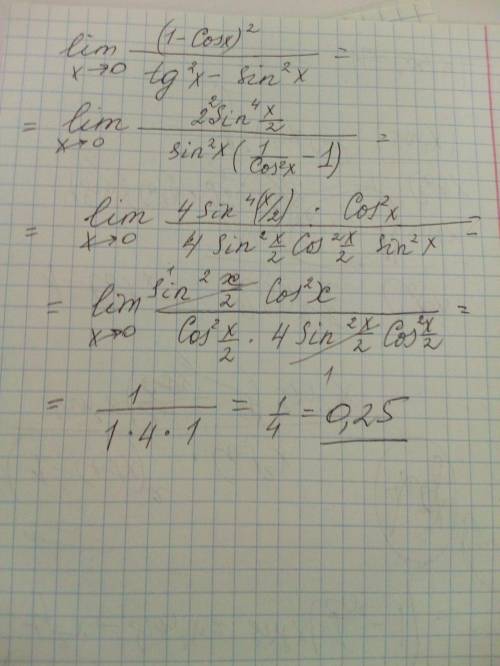 lim x→0 (1-Cosx)² / (tg²x - Sin²x) =
= lim x→0 2²Sin⁴ x/2 / (Sin²x (1/Cos²x - 1)) =
= lim x→0 4 Sin⁴(x/2) · Cos²x / (4 Sin² x/2 Cos² x/2 Sin²x) =
= lim x→0 Sin² x/2 Cos²x / (Cos² x/2 · 4 Sin² x/2 Cos² x/2) =
= 1 / (1·4·1) = 1/4 = 0,25